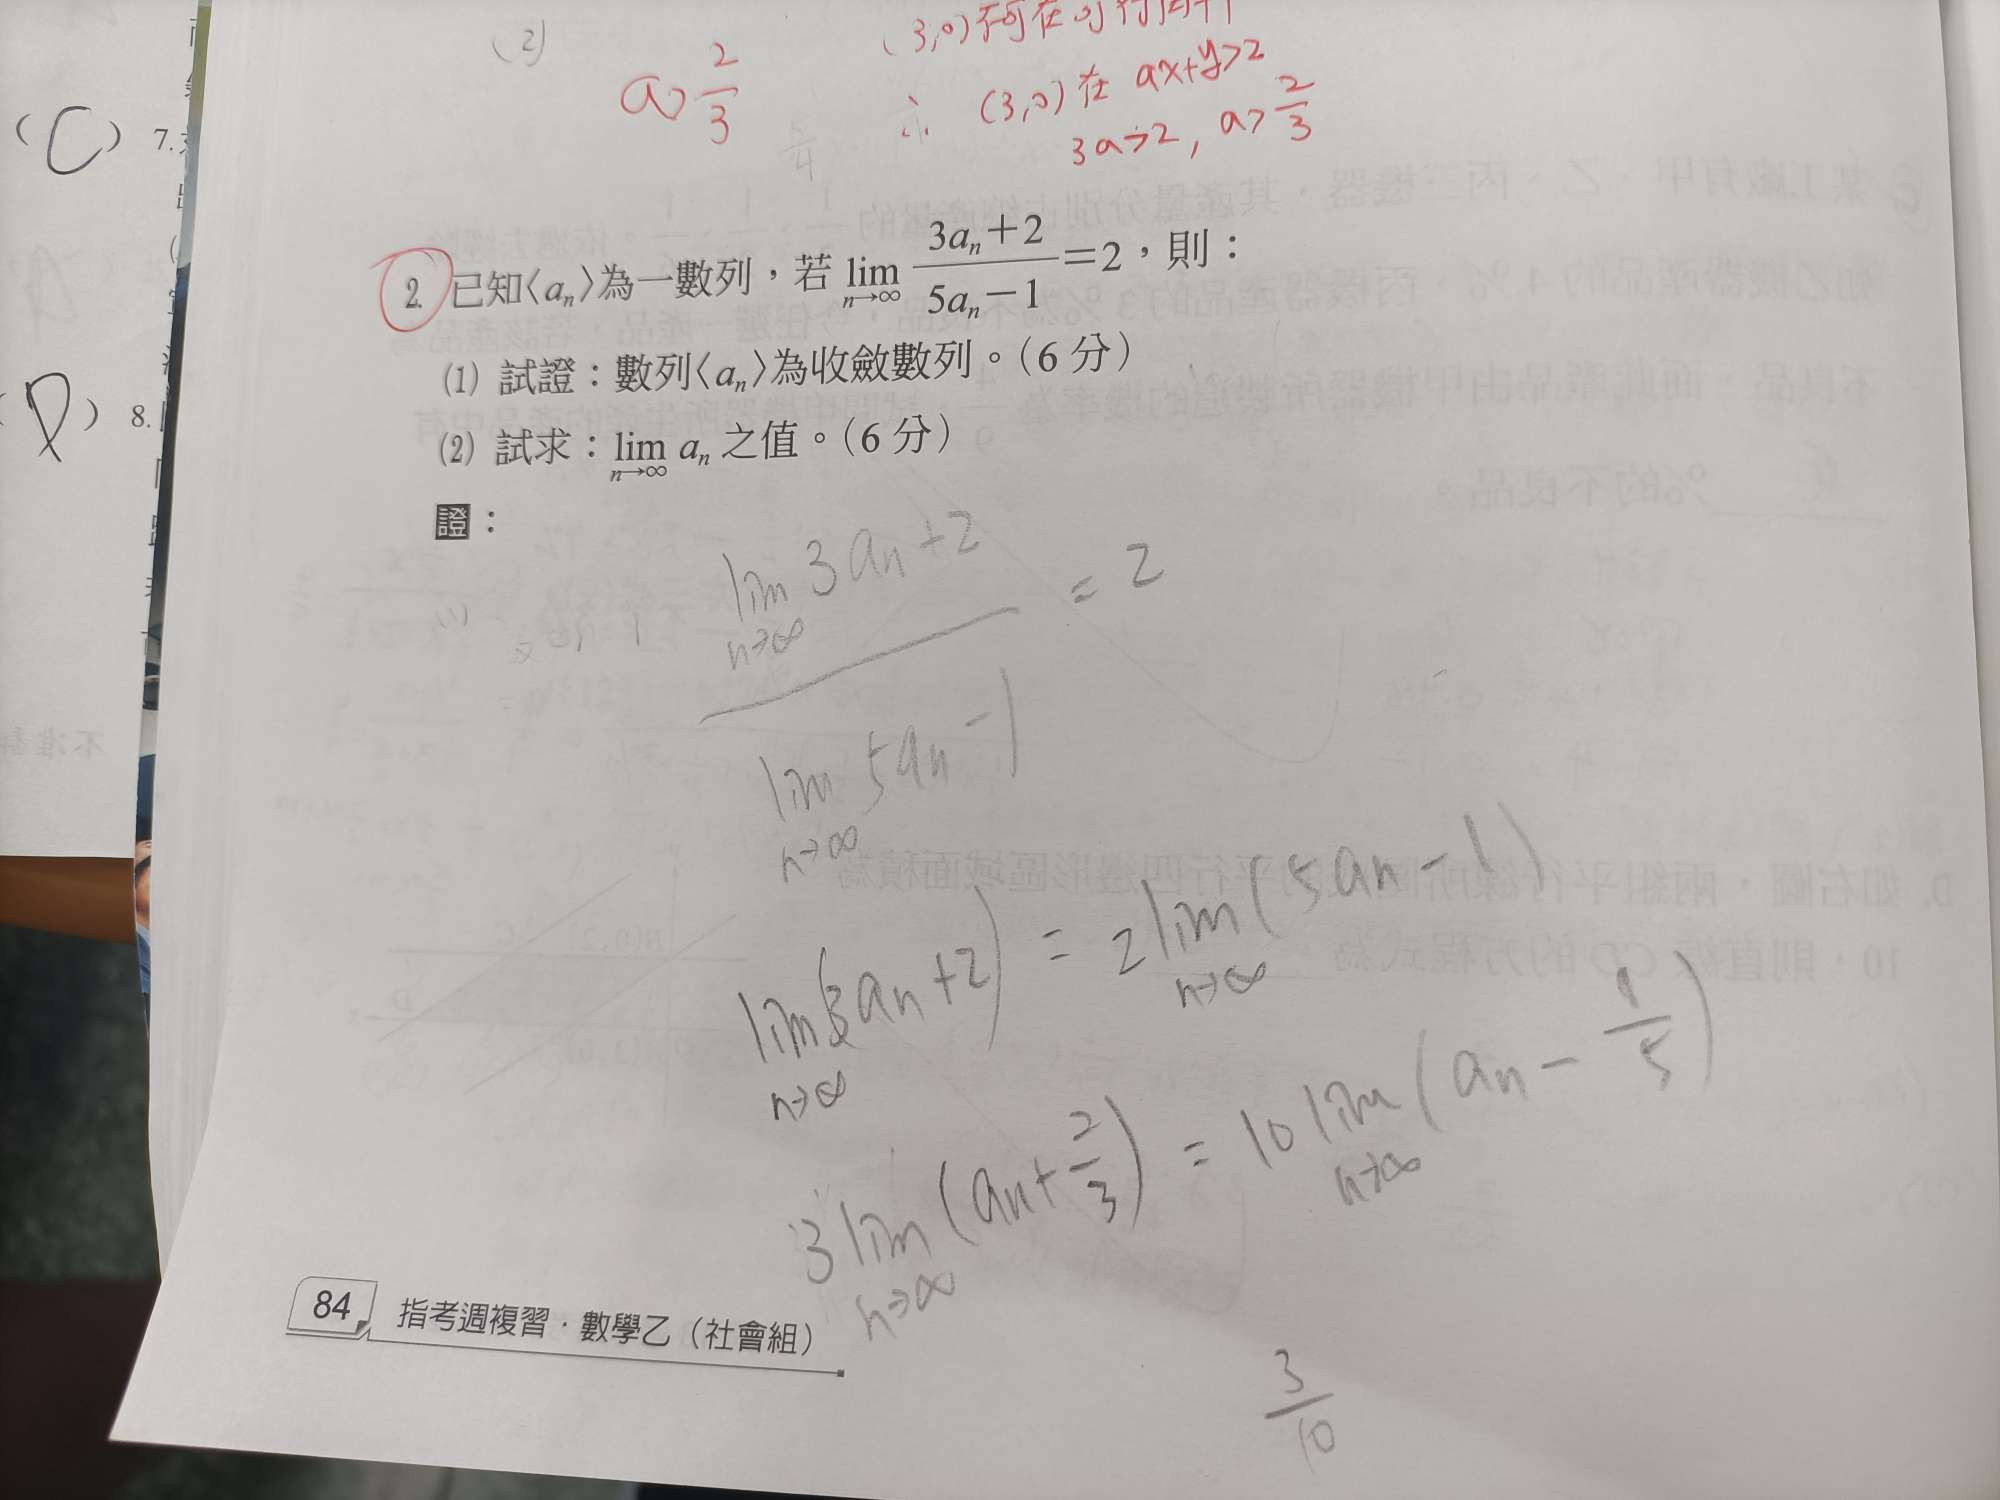 (2)
(3,0)不可在可行
a>2/3
∴ (3,0)在 ax+y>2
3a>2, a>2/3
(C) 7.
2. 已知⟨aₙ⟩為一數列，若 lim n→∞ (3aₙ+2)/(5aₙ−1)=2，則：
(1) 試證：數列⟨aₙ⟩為收斂數列。(6 分)
(D) 8.
(2) 試求：lim n→∞ aₙ 之值。(6 分)
證：
lim n→∞ 3an+2 / lim n→∞ 5an-1 = 2
lim n→∞ (3an+2) = 2 lim n→∞ (5an-1)
3 lim n→∞ (an+2/3) = 10 lim n→∞ (an-1/5)
3/10
84 指考週複習．數學乙（社會組）